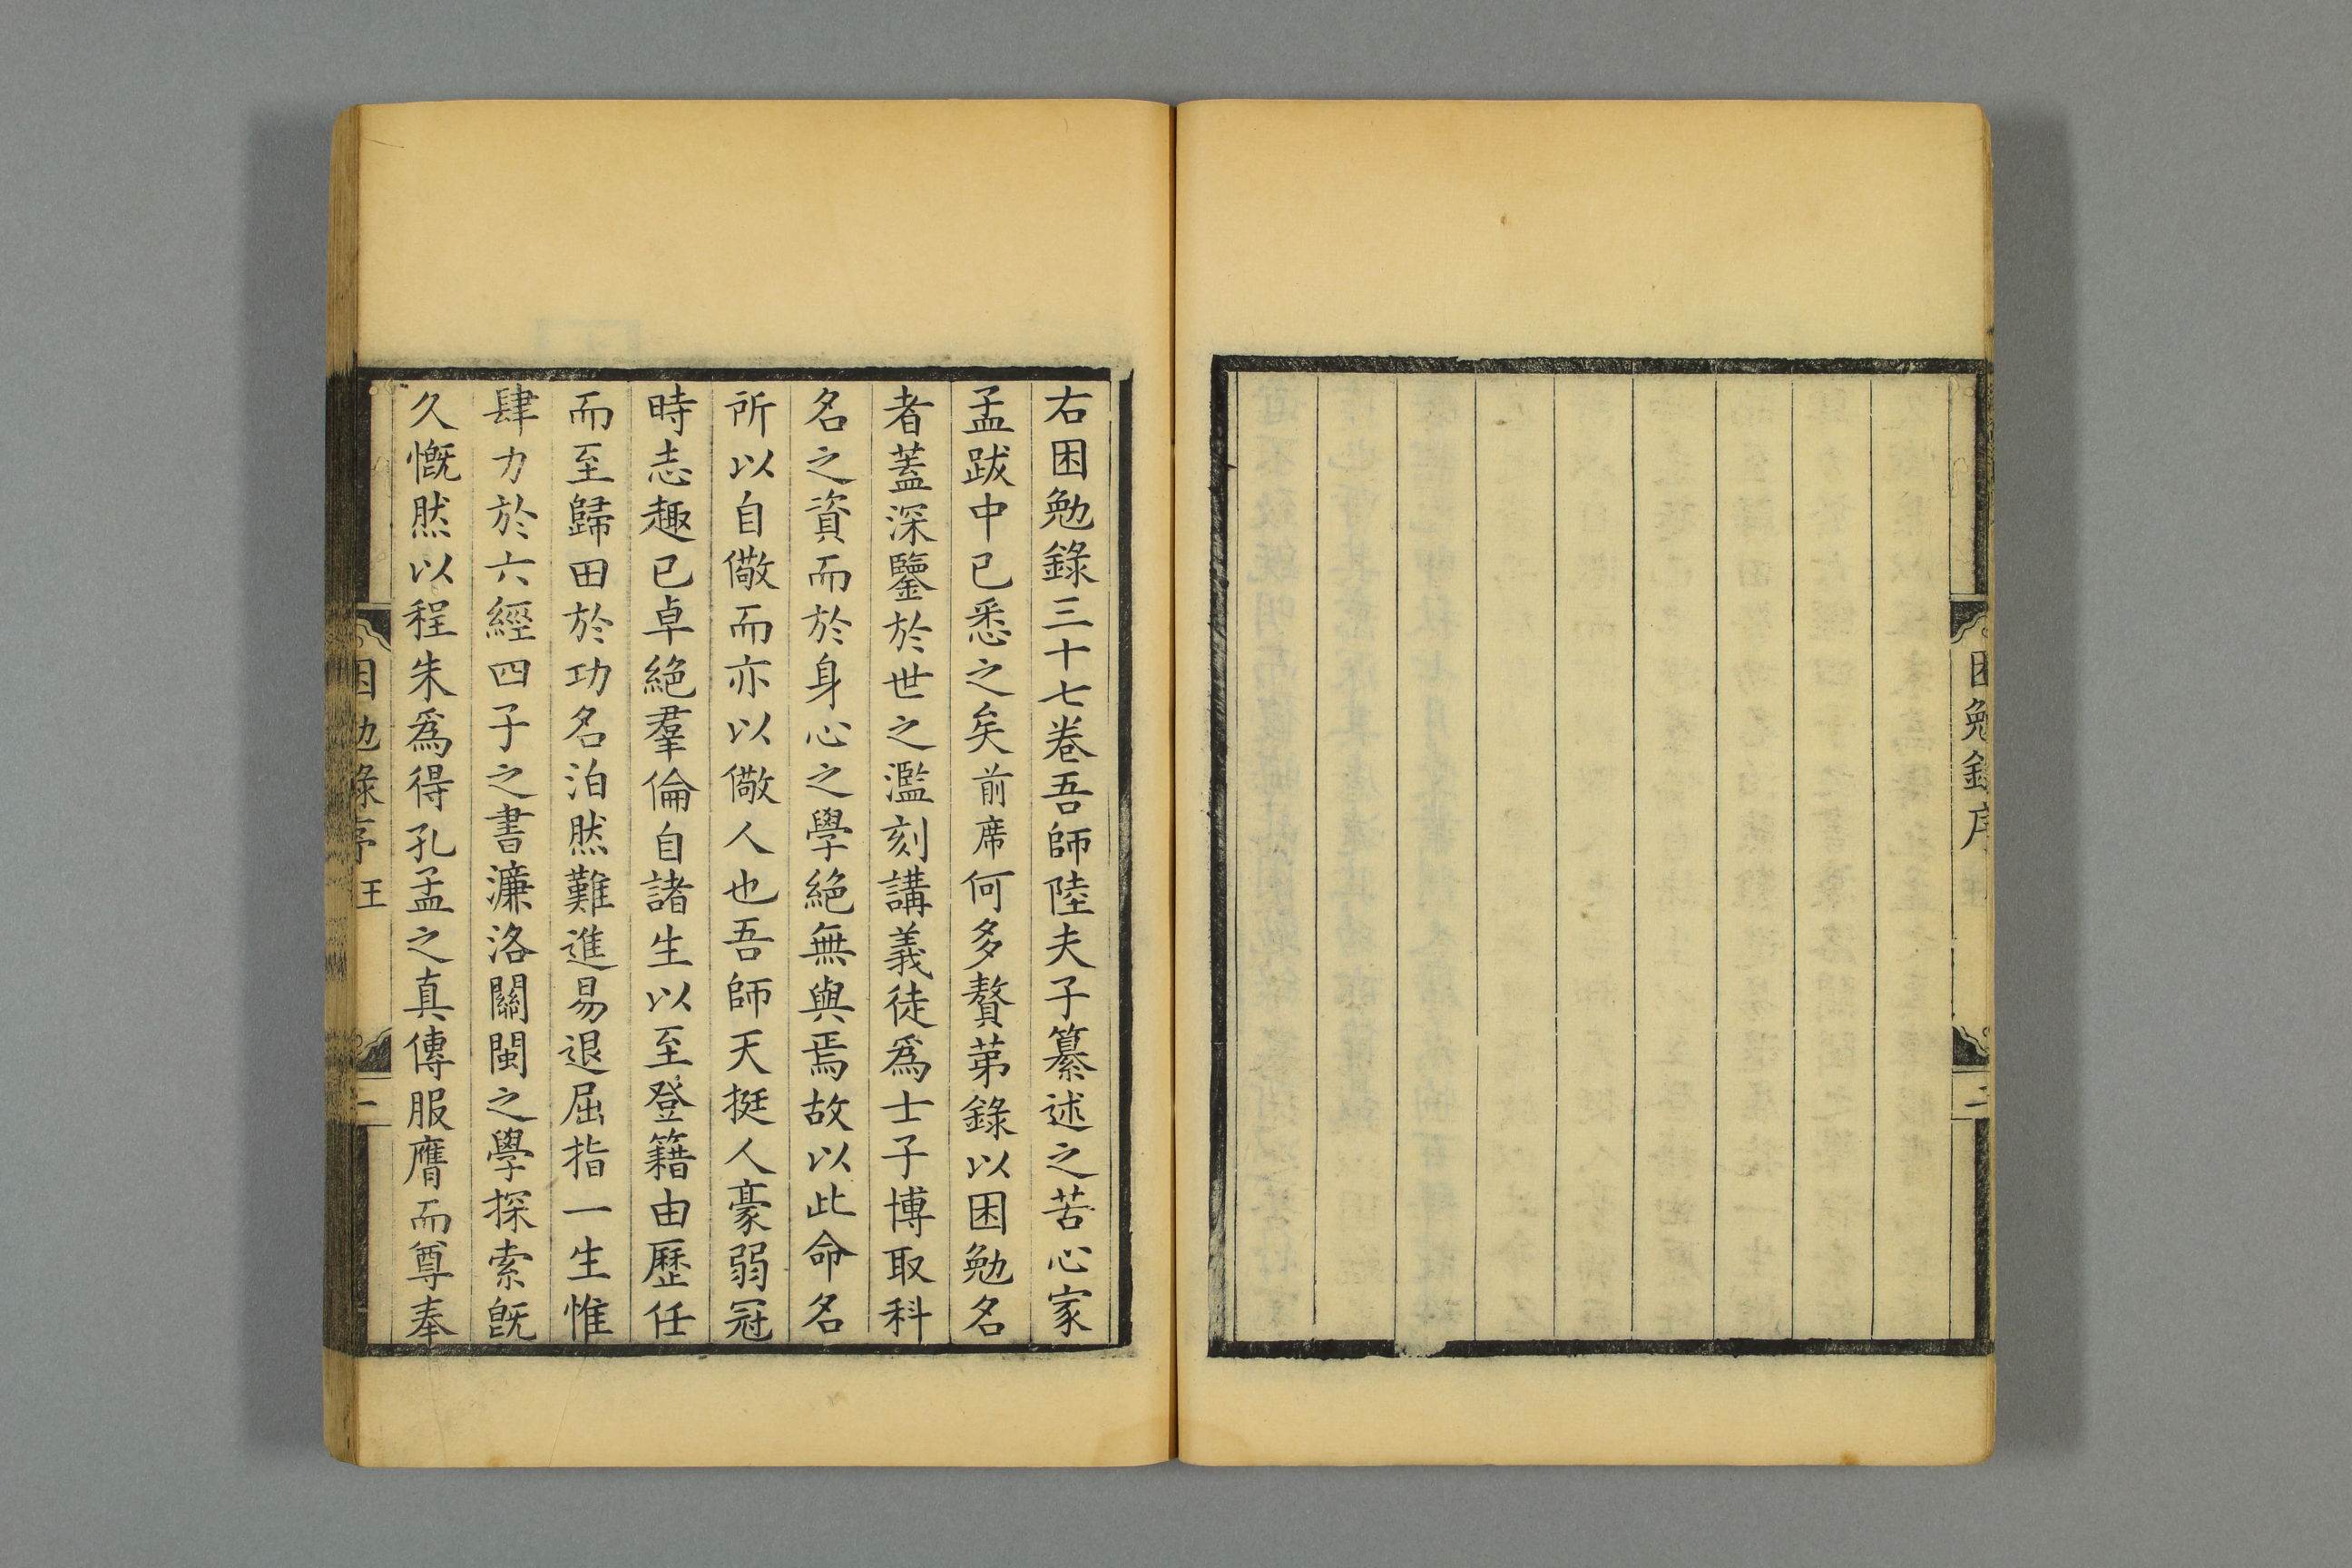 困勉錄序
二
右困勉錄三十七卷吾師陸夫子纂述之苦心家
孟跋中已悉之矣前席何多贅苐錄以困勉名
者蓋深鑒於世之濫刻講義徒爲士子博取科
名之資而於身心之學絕無與焉故以此命名
所以自儆而亦以儆人也吾師天挺人豪弱冠
時志趣已卓絕羣倫自諸生以至登籍由歷任
而至歸田於功名泊然難進易退屈指一生惟
肆力於六經四子之書濂洛關閩之學探索旣
久慨然以程朱爲得孔孟之真傳服膺而尊奉
困勉錄序 王
一